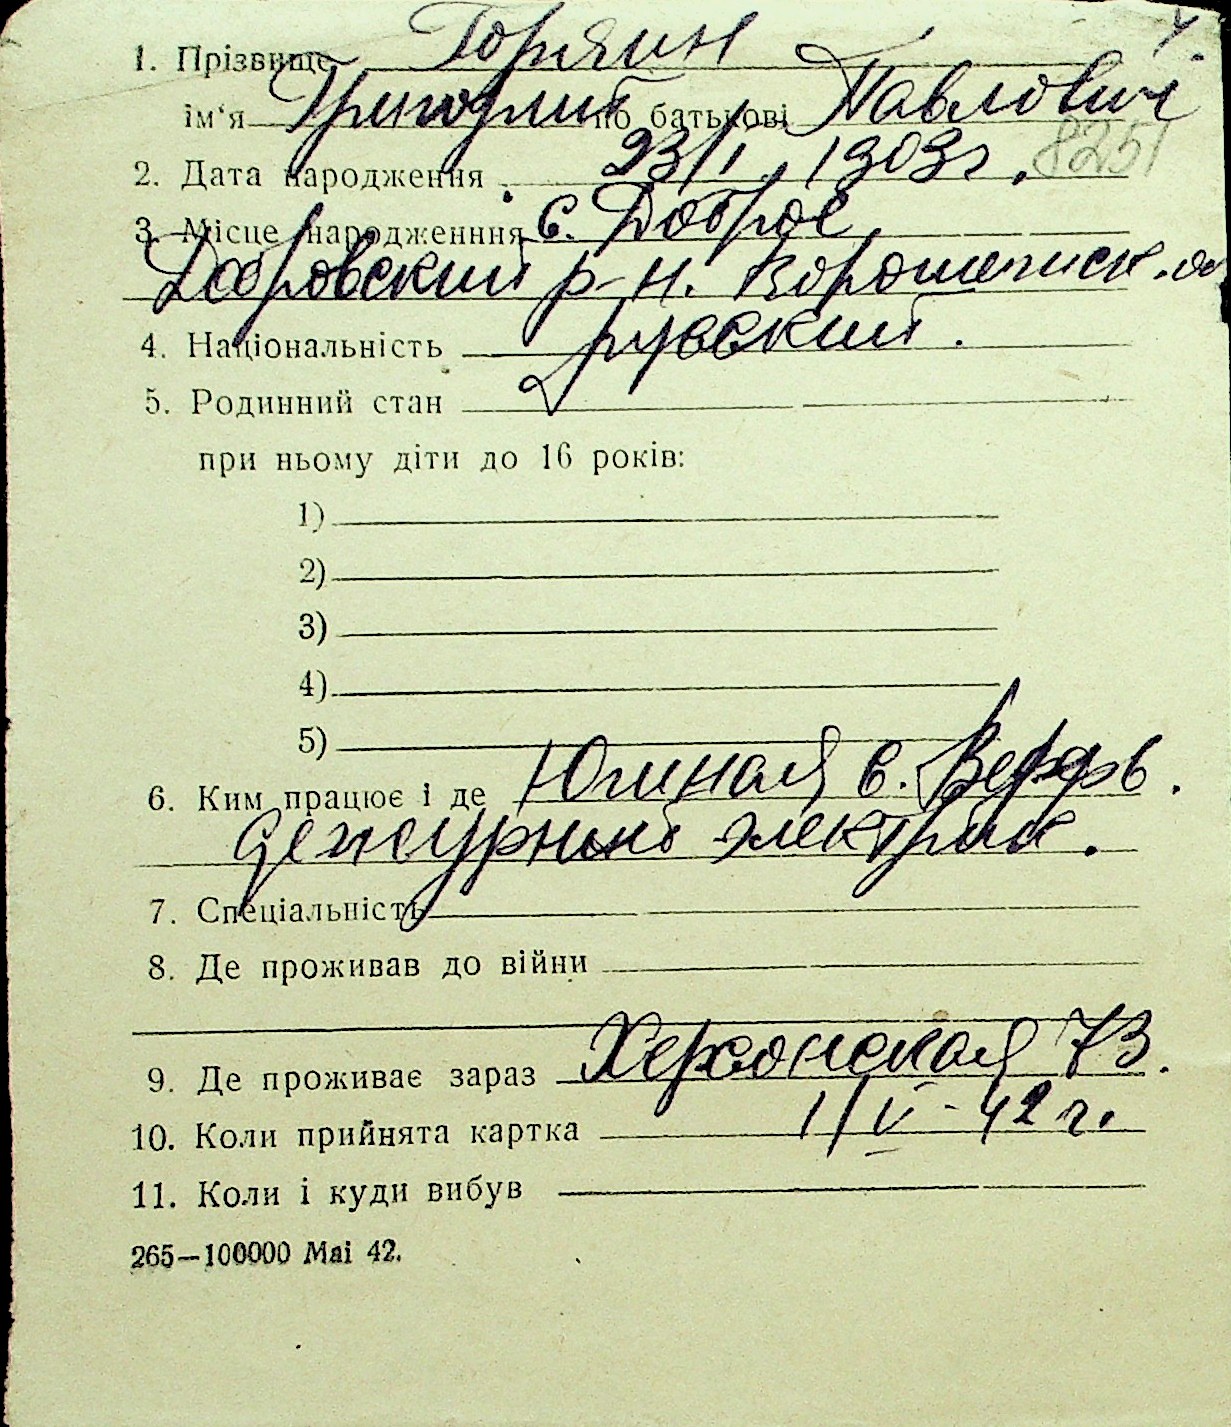 1. Прізвище Горяин
ім‘я Григорий по батькові Павлович
2. Дата народження 23/I. 1903 г. 8251
3. Місце народженння с. Доброе
Добровский р-н. Ворошиловск. о
4. Національність русский.
5. Родинний стан
при ньому діти до 16 років:
1)
2)
3)
4)
5)
6. Ким працює і де Южная с. Верфь.
дежурный электрик.
7. Спеціальність
8. Де проживав до війни
9. Де проживає зараз Херсонская 73.
10. Коли прийнята картка 1/V - 42 г.
11. Коли і куди вибув
265—100000 Mai 42.